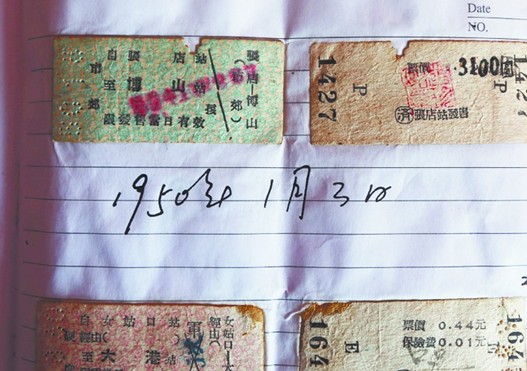 Date
NO.
自張店站
至博山站
市郊
限發售當日有效
張店—博山
(市郊)
1427
P
票價
3100圓
P
1427
張店站發售
1950年1月3日
自女姑口站
經由
至大港站
女姑口—大
經由
164
E
票價 0.44元
保險費 0.01元
164